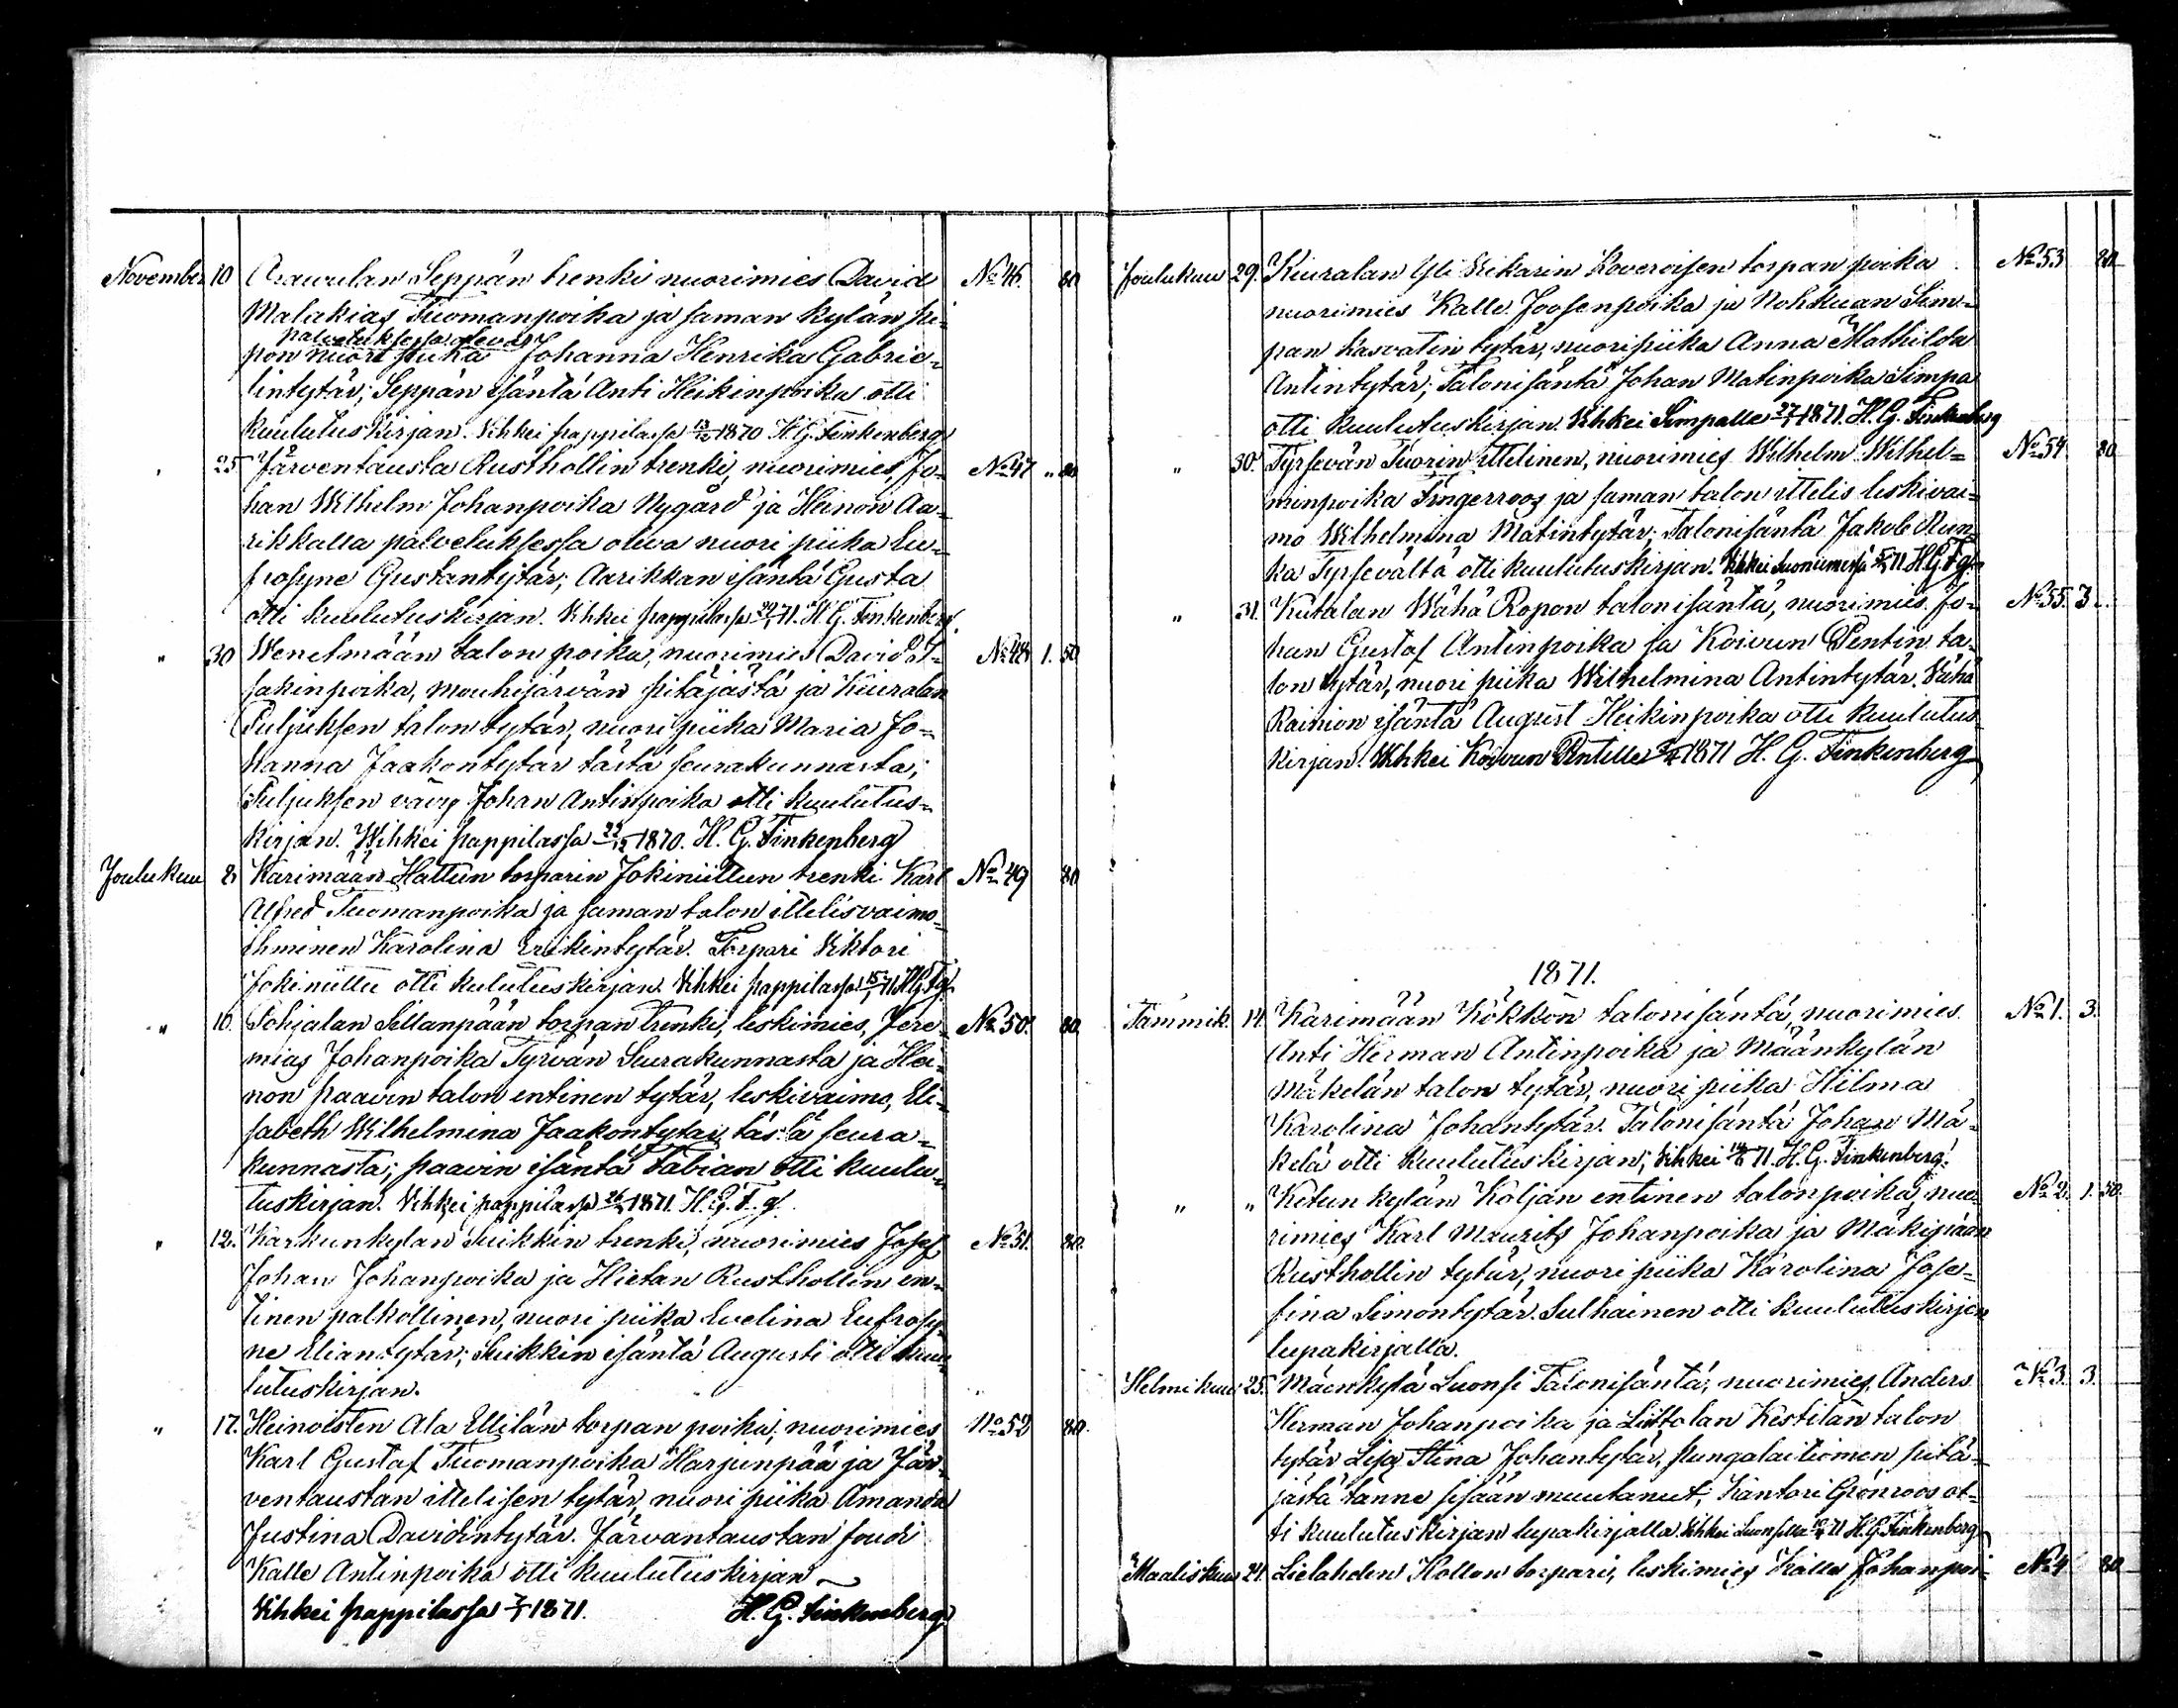 November 10 Seppän trenki nuorimies David No 46. 80
Malakias Tuomanpoika ja saman kylän pi-
palveluksessa oleva
pon nuori piika Johanna Henrika Gabrie-
lintytär; Seppän isäntä Anti Heikinpoika otti
kuulutuskirjan. Vihkei pappilassa 13/12 1870 H. G. Finkenberg
" 25 Järventausta Rusthollin trenki, nuorimies, Jo- No 47 " 80
han Wilhelm Johanpoika Nygård ja Heinon Aa-
rikkalla palveluksessa oleva nuori piika Eu-
frosyne Gustantytär; Aarikkan isäntä Gusta
otti kuulutuskirjan. Vihkei pappilassa 71. H. G. Finkenberg
" 30 Wenelmään talon poika, nuorimies David I- No 48 1. 50
sakinpoika, mouhijärvän pitäjästä ja Kiuralan
Puljuksen talon tytär, nuori piika Maria Jo-
hanna Jaakontytär tästä seurakunnasta;
Puljuksen vävy Johan Antinpoika otti kuulutus-
kirjan. Wihkei pappilassa 22/12 1870. H. G. Finkenberg
Joulukuu 2 Karimään Hattun torparin Jokiniittun trenki Karl No 49 80
Alfred Tuomanpoika ja saman talon ittelisvaimo-
ihminen Karolina Erikintytär. Torpari Viktori
Jokiniittu otti kulutuskirjan. Vihkei pappilassa 15/1 71 H G Fg.
" 10. Pohjalan Sillanpään torpan trenki, leskimies, Jere- No 50. 80
mias Johanpoika Tyrvän Seurakunnasta ja Hei-
non paavin talon entinen tytär, leskivaimo, Eli-
sabeth Wilhelmina Jaakontytar tästä seura-
kunnasta; paavin isäntä Fabian otti kuulu-
tuskirjan. Vihkei pappilassa 1871. H. G. F. g.
" 12. Karkunkylän Suikkin trenki, nuorimies Josef No 51. 80.
Johan Johanpoika ja Hietan Rusthollin en-
tinen palkollinen, nuori piika Evelina Eufrosy-
ne Eliantytär; Suikkin isäntä Augusti otti kuu-
lutuskirjan.
" 17. Heinoisten Ala Ellilän torpan poika, nuorimies No 52 80.
Karl Gustaf Tuomanpoika Harjunpää ja Jär-
ventaustan ittelisen tytär, nuori piika Amanda
Justina Davidintytär. Järvantaustan foudi
Kalle Antinpoika otti kuulutuskirjan
Vihkei pappilassa 1871. H. G. Finkenberg
Joulukuu 29. Kiuralan Yli Vikarin Koveroisen torpan poika No 53 80
nuorimies Kalle Joosenpoika ja Nohkuan Sim-
pan kasvatin tytär, nuoripiika Anna Mathilda
Antintytär; Talonisäntä Johan Matinpoika Simpa
otti kuulutuskirjan. Vihkei Simpalle 27/1 1871. H. G. Finkenberg
" 30. Tyrsevän Tuorin ittelinen, nuorimies Wilhelm Wilhel- No 54 80
minpoika Fingerroos ja saman talon ittelis leskivai-
mo Wilhelmina Matintytär; Talonisäntä Jakob Run-
ka Tyrsevältä otti kuulutuskirjan. Vihkei Suoniemessä 71 H. G. Fg.
" 31. Kutalan Wähä Ropon talonisäntä, nuorimies Jo- No 55. 3 "
han Gustaf Antinpoika ja Koivun Pentin ta-
lon tytär, nuori piika Wilhelmina Antintytär. Vähä
Rainion isäntä August Heikinpoika otti kuulutus-
kirjan. Vihkei Koivun Pentille 1871 H. G. Finkenberg
1871.
Tammik. 14. Karimään Kökkön talonisäntä, nuorimies No 1. 3.
Anti Herman Antinpoika ja Määnkylän
Mäkelän talon tytär, nuori piika Hilma
Karolina Johantytär. Talonisäntä Johan Mä-
kelä otti kuulutuskirjan; Vihkei 71. H. G. Finkenberg.
" " Kutun kylän Köljän entinen talonpoika, nuo- No 2. 1. 50.
rimies Karl Maurits Johanpoika ja Mäkipään
Rusthollin tytär, nuori piika Karolina Jose-
fina Simontytär. Sulhainen otti kuulutuskirjan
lupakirjalla.
Helmikuu 25. Mäenkylä Luonsi Talonisäntä, nuorimies, Anders No 3. 3.
Herman Johanpoika ja Liittolan Kestilän talon
tytär Lisa Stina Johantytär, pungalaitiomen pitä-
jästä tänne sisään muutanut; Kantori Grönroos ot-
ti kuulutuskirjan lupakirjalla. Vihkei Luonsilla 71 H. G. Finkenberg
Maaliskuu 24. Lielahden Hollon torpari, leskimies Kalle Johanpoi- No 4 80